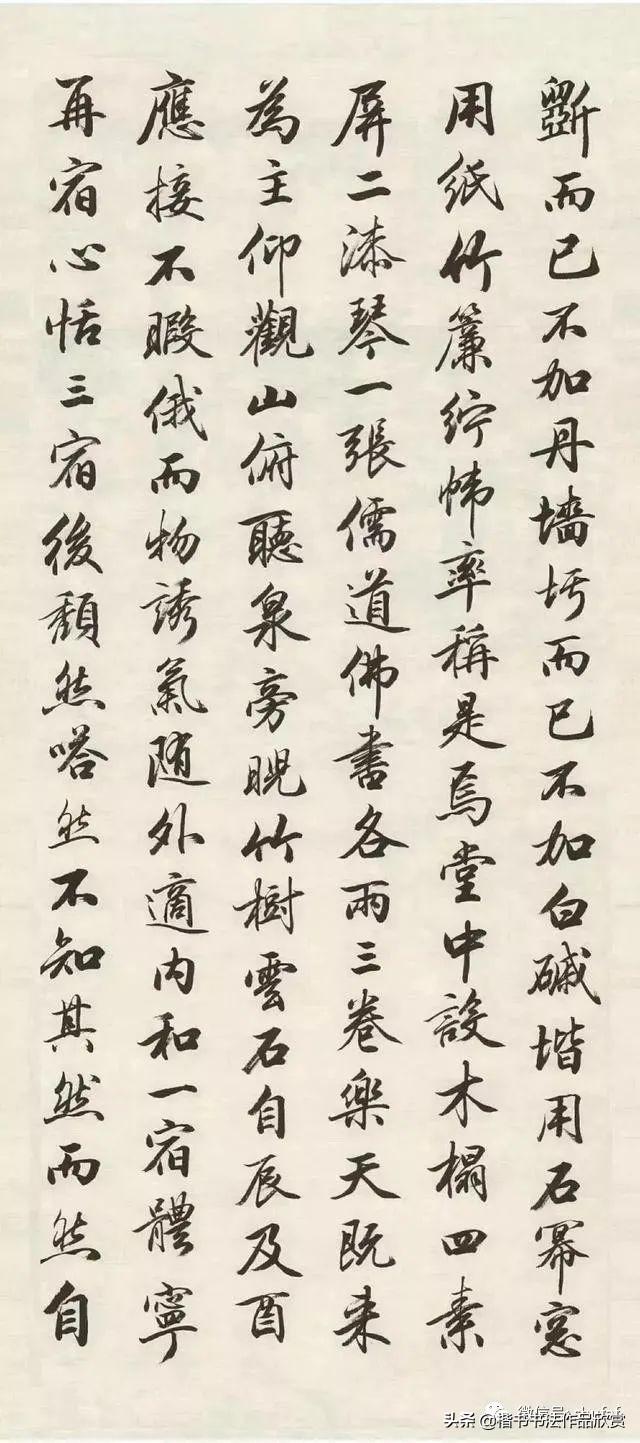 斵而已不加丹墻圬而已不加白磩堦用石羃窓
用紙竹簾紵帏率稱是焉堂中設木榻四素
屏二漆琴一張儒道佛書各兩三卷樂天既来
為主仰觀山俯聽泉旁睨竹樹雲石自辰及酉
應接不暇俄而物誘氣随外適内和一宿體寧
再宿心恬三宿後頹然嗒然不知其然而然自
微信号:
头条 @楷书书法作品欣赏